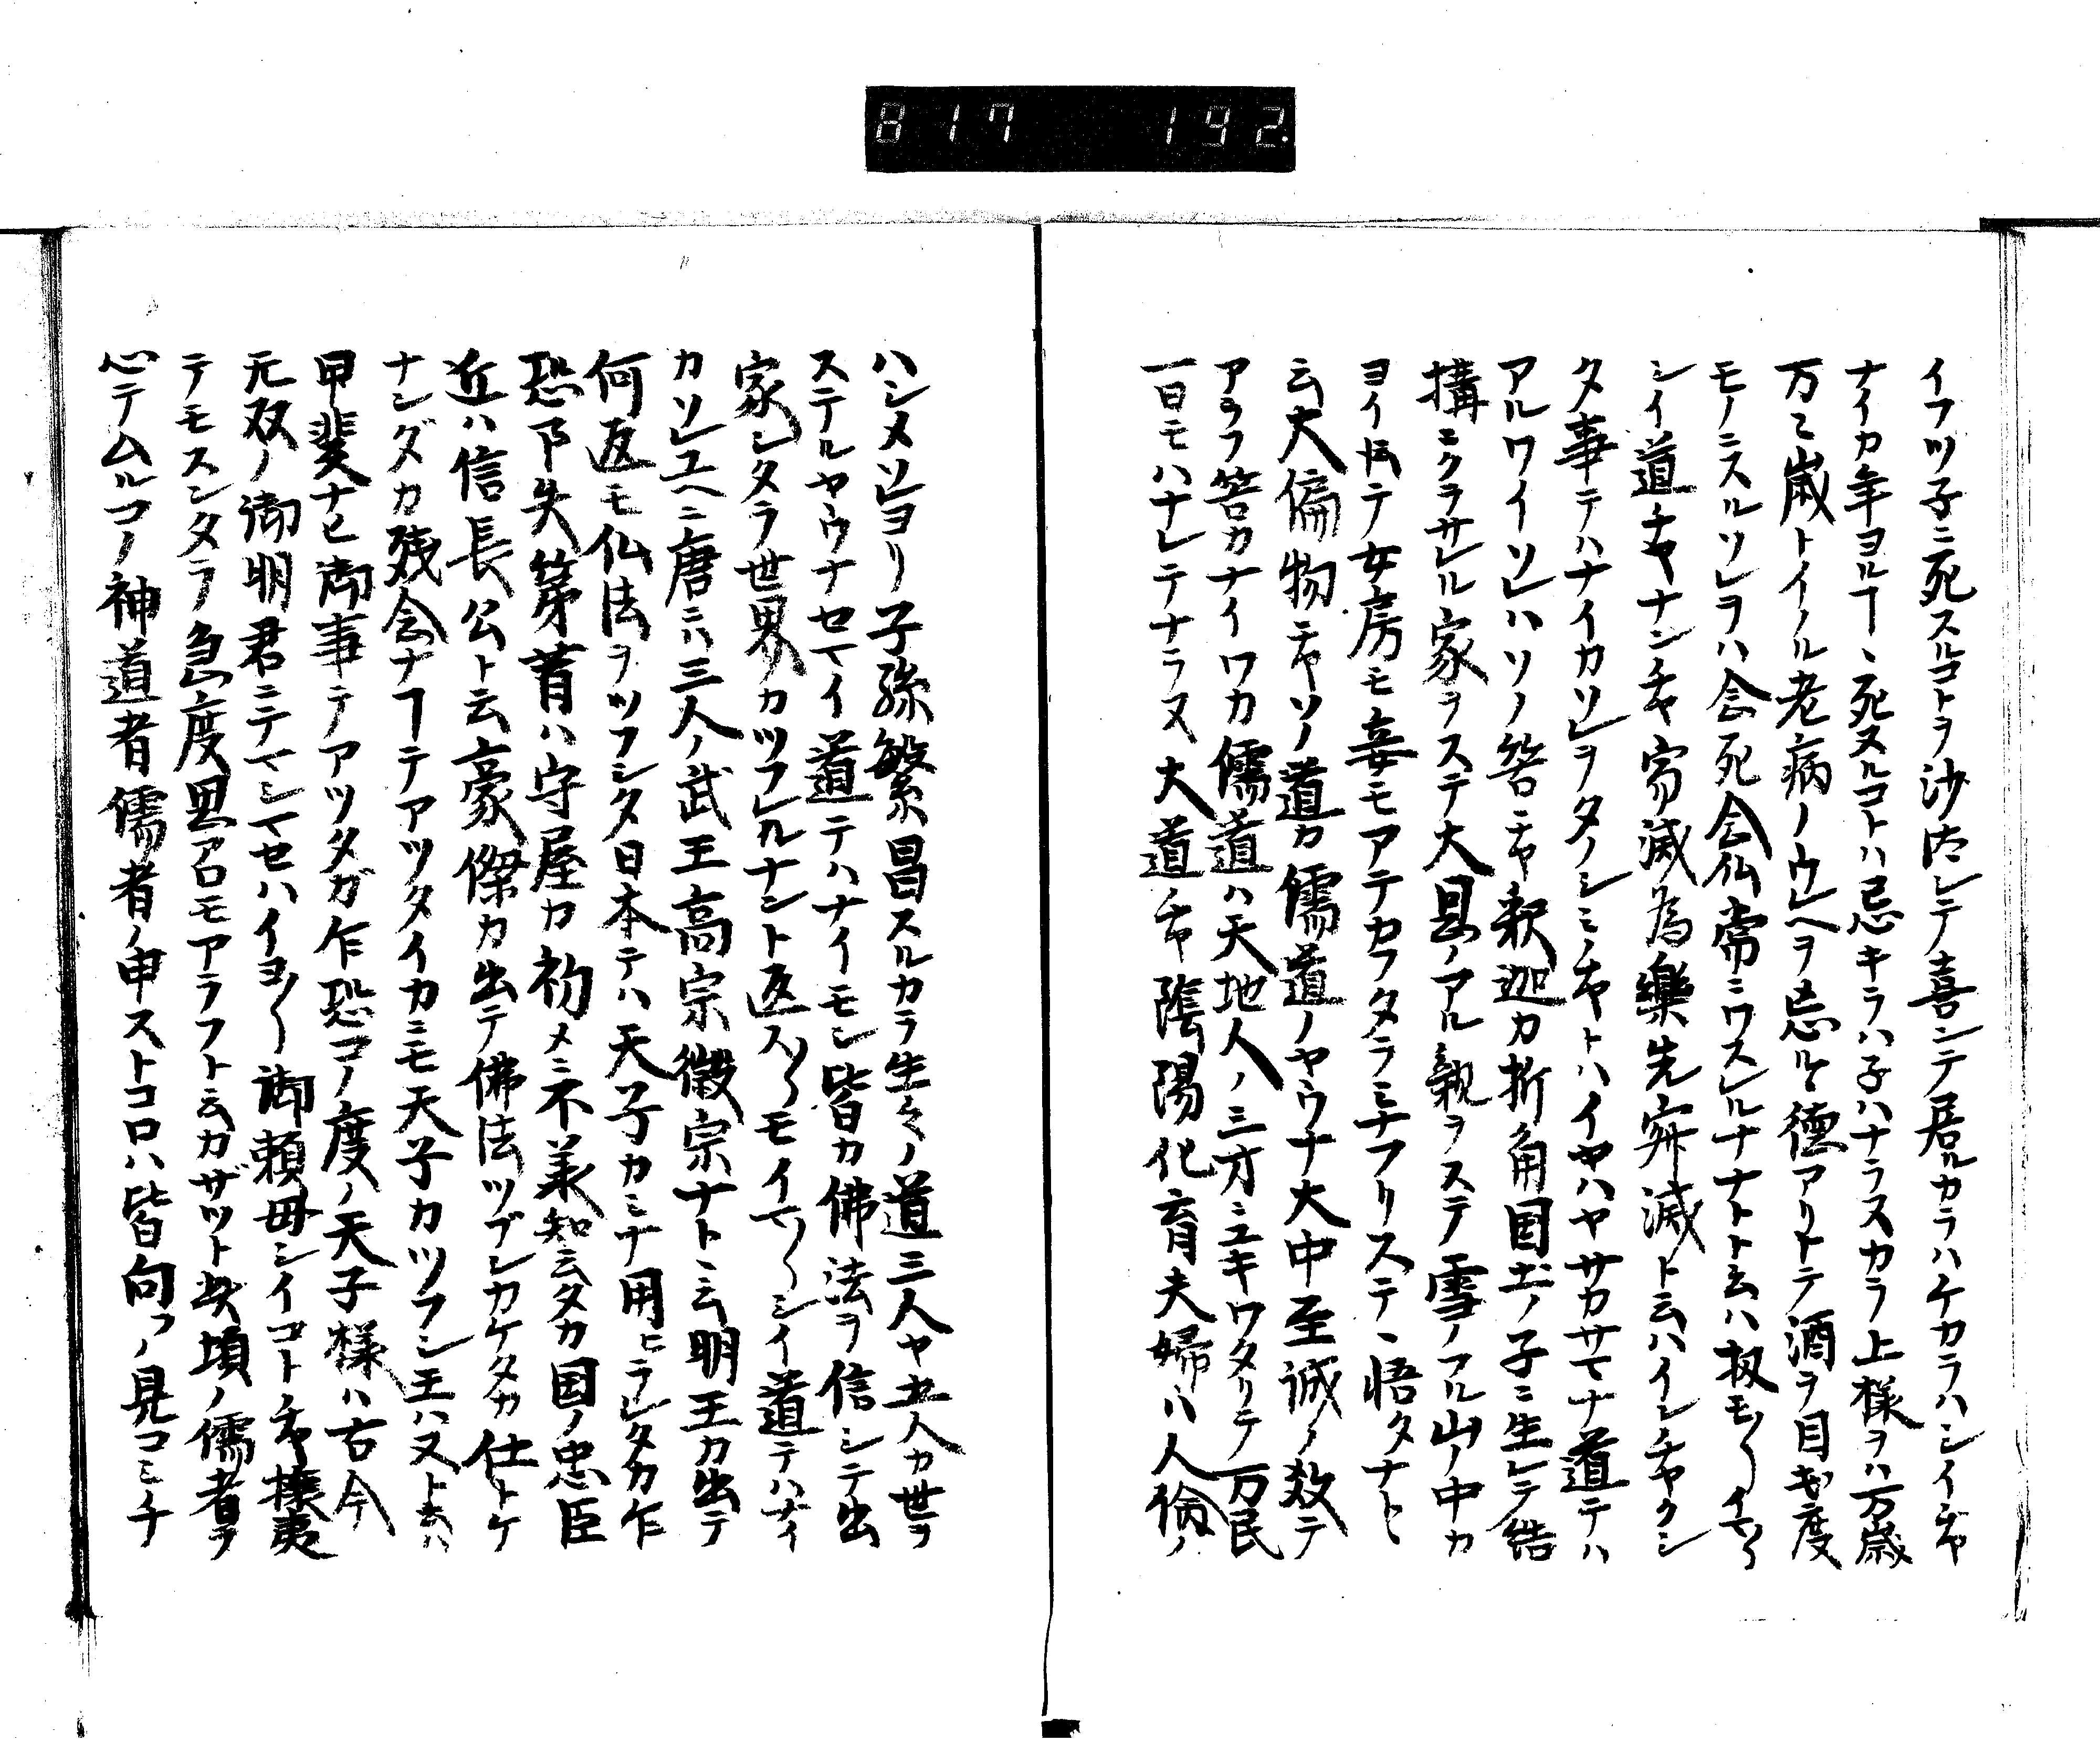 817 192.
イフツ子ニ死スルコトヲ沙汰シテ喜ンテ居ルカラハケカラハシイチヤ
ナイカ年ヨルヿヽ死スルコトハ忌キラハ子ハナラスカラ上様ヲハ万歳
万々歳トイノル老病ノウレヘヲ忘ルヽ徳アリトテ酒ヲ目出度
モノニスルソレヲハ念死念仏常ニワスレルナナトト云ハ扨モ〱イマ〱
シイ道チヤナンチヤ寂滅為樂先寂滅ト云ハインチヤクシ
タ事テハナイカソレヲタノシミチヤトハイヤハヤサカサマナ道テハ
アルワイソレハソノ筈チヤ釈迦カ折角国王ノ子ニ生レテ結
構ニクラサレル家ヲステ大恩ノアル親ヲステ雪ノフル山ノ中カ
ヨイトテ女房モ妾モアテカフタラミナフリステヽ悟タナト
云大偏物チヤソノ道カ儒道ノヤウナ大中至誠ノ教テ
アラフ筈カナイワカ儒道ハ天地人ノ三才ニユキワタリテ万民
一日モハナレテナラヌ大道チヤ陰陽化育夫婦ハ人倫ノ
ハシメソレヨリ子孫繁昌スルカラ生々ノ道三人ヤ五人カ世ヲ
ステルヤウナセマイ道テハナイモシ皆カ佛法ヲ信シテ出
家シタラ世界カツフレルナント返ス〱モイマ〱シイ道テハナイ
カソレユヘニ唐ニハ三人ノ武王高宗徽宗ナトヽ云明王カ出テ
何返モ仏法ヲツフシタ日本テハ天子カミナ用ヒラレタカ乍
恐不失第一首ハ守屋カ初メニ不義知云タカ国ノ忠臣
近ハ信長公ト云豪傑カ出テ佛法ツブシカケタカ仕トケ
ナンダカ残念ナヿテアツタイカニモ天子カツフシ玉ハヌト云ハ
甲斐ナヒ御事テアツタガ乍恐コノ度ノ天子様ハ古今
无双ノ御明君ニテマシマセハイヨ〱御頼母シイコトチヤ攘夷
テモスンタラ急度思召モアラフト云カザツト此頃ノ儒者ヲ
心テムルコノ神道者儒者ノ申ストコロハ皆向フノ見コミチ